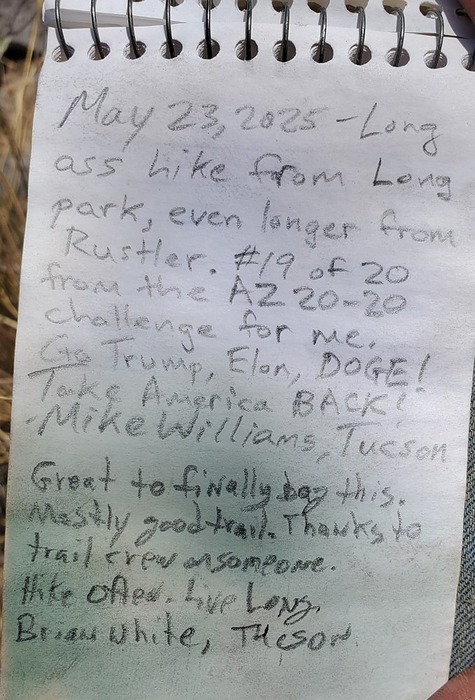 May 23, 2025 - Long
ass hike from Long
park, even longer from
Rustler. #19 of 20
from the AZ 20-20
challenge for me.
Go Trump, Elon, DOGE!
Take America BACK!
-Mike Williams, Tucson
Great to finally bag this.
Mostly good trail. Thanks to
trail crew or someone.
Hike often. Live Long.
Brian White, Tucson